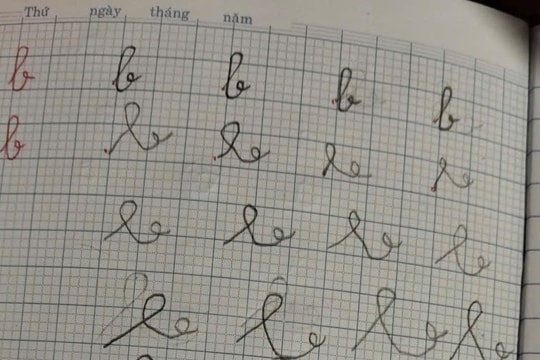 Thứ ngày tháng năm
b b b b b
b b b b b
b b b b
b b b b